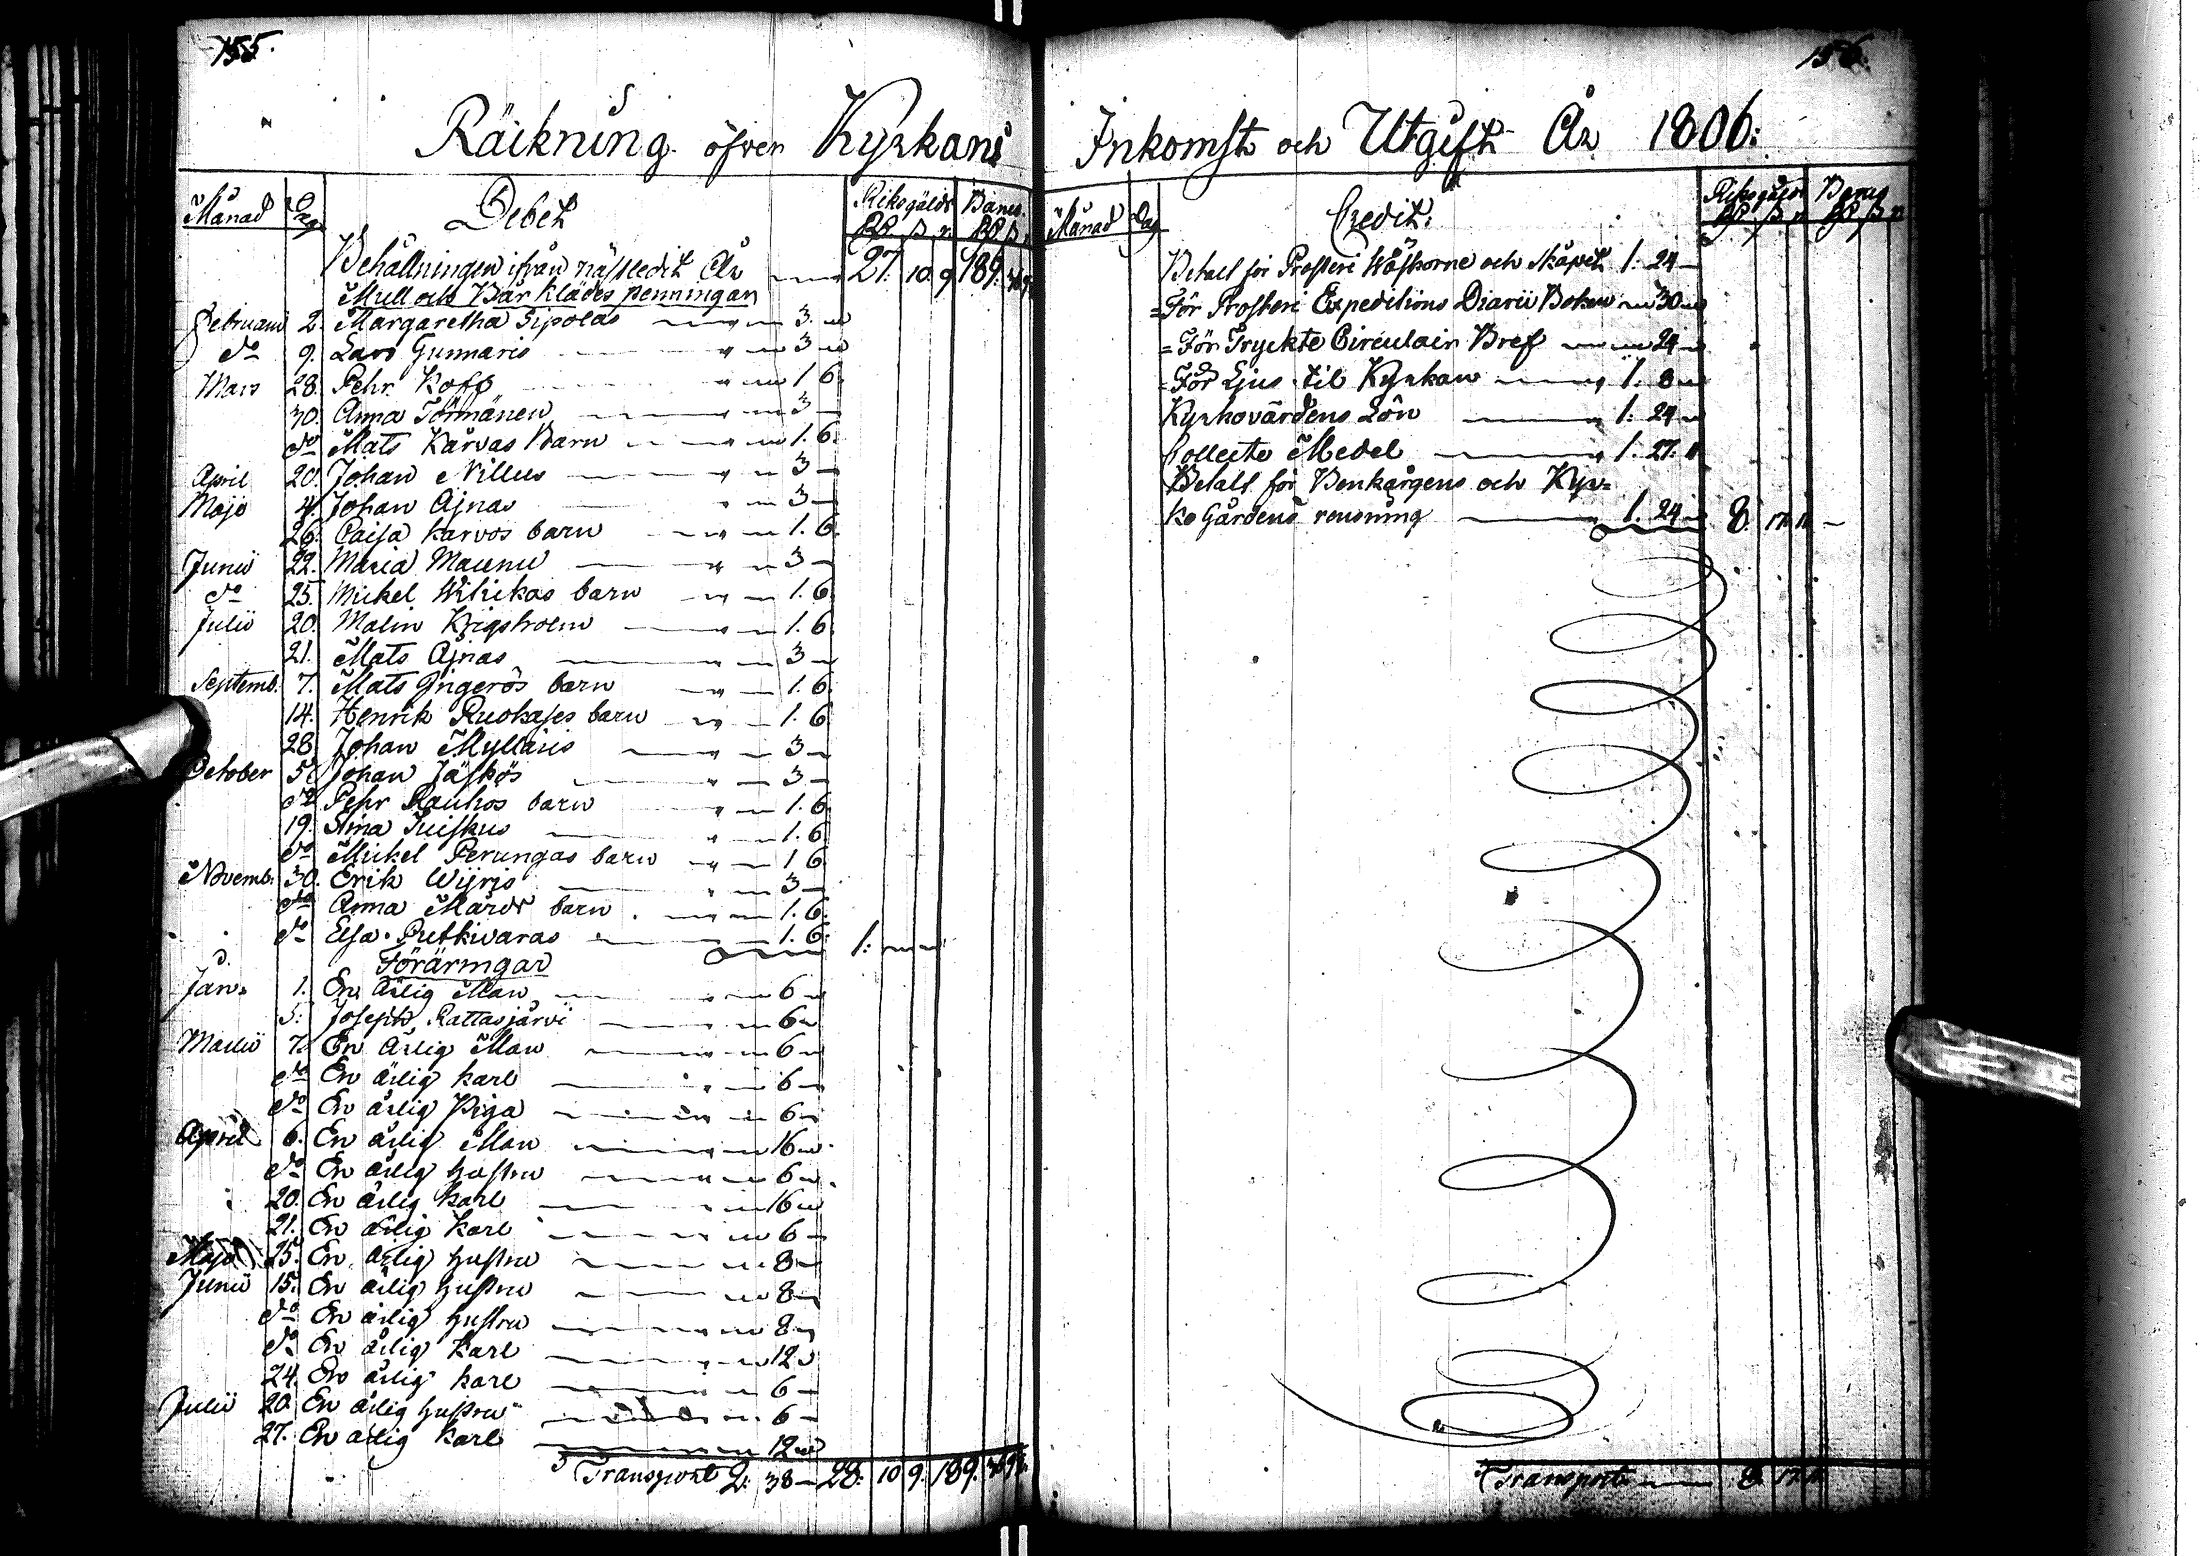 155.
Räikning öfver Kyrkans
Månad Dag Debet Riksgälds Banco
RD ß r. RD ß r.
Behållningen ifrån näskledit År 27. 10. 9 189.
Mull och Bårklädes penningar
Februarii 2. Margaretha Sipolas 3.
do 9. Lars Gunnaris 3
Mars 28. Pehr Koff 1 6.
30. Anna Törmänen 3
do Mats Karvas Barn 1. 6.
April 20. Johan Nillus 3
Majo 4. Johan Ajnas 3
26. Caisa Karvos barn 1. 6.
Junii 22. Maria Maunu 3
do 25. Mickel Wilikas barn 1. 6
Julii 20. Malin Krigsholm 1. 6.
21. Mats Ajnas 3
Septemb. 7. Mats Ingerös barn 1. 6.
14. Henrik Ruokajes barn 1. 6
28 Johan Mylläris 3
October 5. Johan Jäskös 3
do Pehr Rauhos barn 1. 6.
19. Stina Suiskus 1. 6
do Mickel Perungas barn 1 6
Novemb. 30. Erik Wijris 3
do Anna Mårdr barn 1. 6.
do Elsa Pretkivaras 1. 6. 1:
Föräringar
Jan. 1. En Ärlig Man 6
5: Joseph Rattasjärvi 6
Martii 7. En Ärlig Man 6
do En ärlig karl 6
do En ärlig Piga 6
April 6. En ärlig Man 16
do En ärlig hustru 6
20. En ärlig karl 16
21. En ärlig karl 6
Majo 25. En ärlig hustru 8
Junii 15. En ärlig hustru 8
do En ärlig hustru 8
do En ärlig Karl 12
24. En ärlig karl 6
Julii 20. En ärlig hustru 6
27. En ärlig karl 12
Transport 2. 38 28. 10 9. 189.
156.
Inkomst och Utgift År 1806.
Månad Dag Credit. Riksgälds Banco
RD ß r. RD ß r.
Betalt för Prosteri Wåskorne och Skåpet 1. 24
För Prosteri Expeditions Diarii Boken 30
För Tryckte Circulair Bref 24
För Ljus til Kyrkan 1. 8
Kyrkovärdens Lön 1. 24
Collecte Medel 1. 27.
Betalt för Benkårgens och Kyr=
ko Gårdens rensning 1. 24 8.
Transport 8.